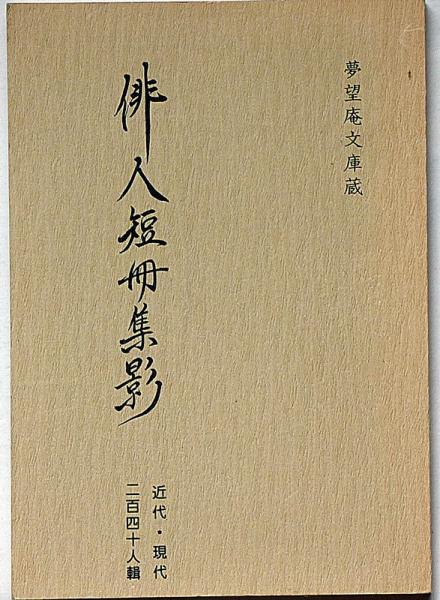 夢望庵文庫蔵
俳人短冊集影
近代・現代
二百四十人輯